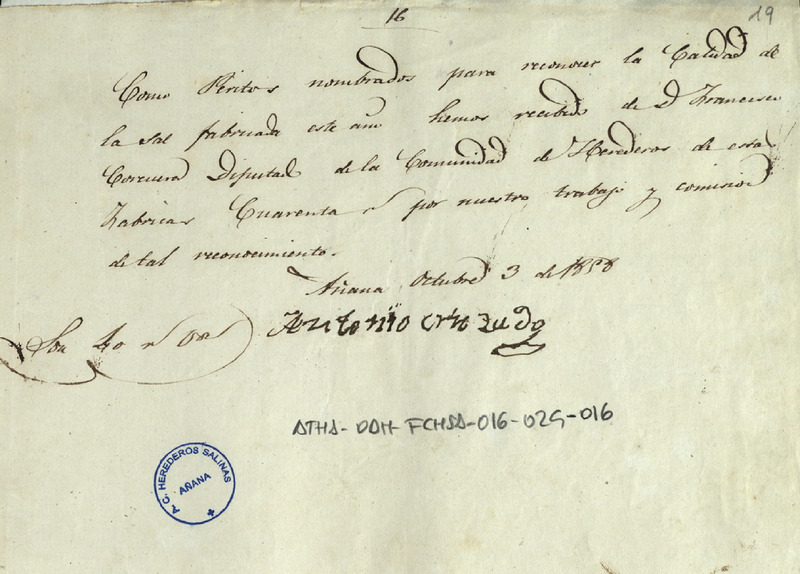 16
19
Como Peritos nombrados para reconocer la Calidad de
la sal fabricada este año hemos recibido de Dn Francisco
Corcuera Diputado de la Comunidad de Herederos de estas
Fabricas Cuarenta r por nuestro trabajo y comision
de tal reconocimiento.
Añana Octubre 3 de 1858
Son 40 r on
Antonio
ATHA-DAH-FCHSA-016-029-016
A. C. HEREDEROS SALINAS
AÑANA